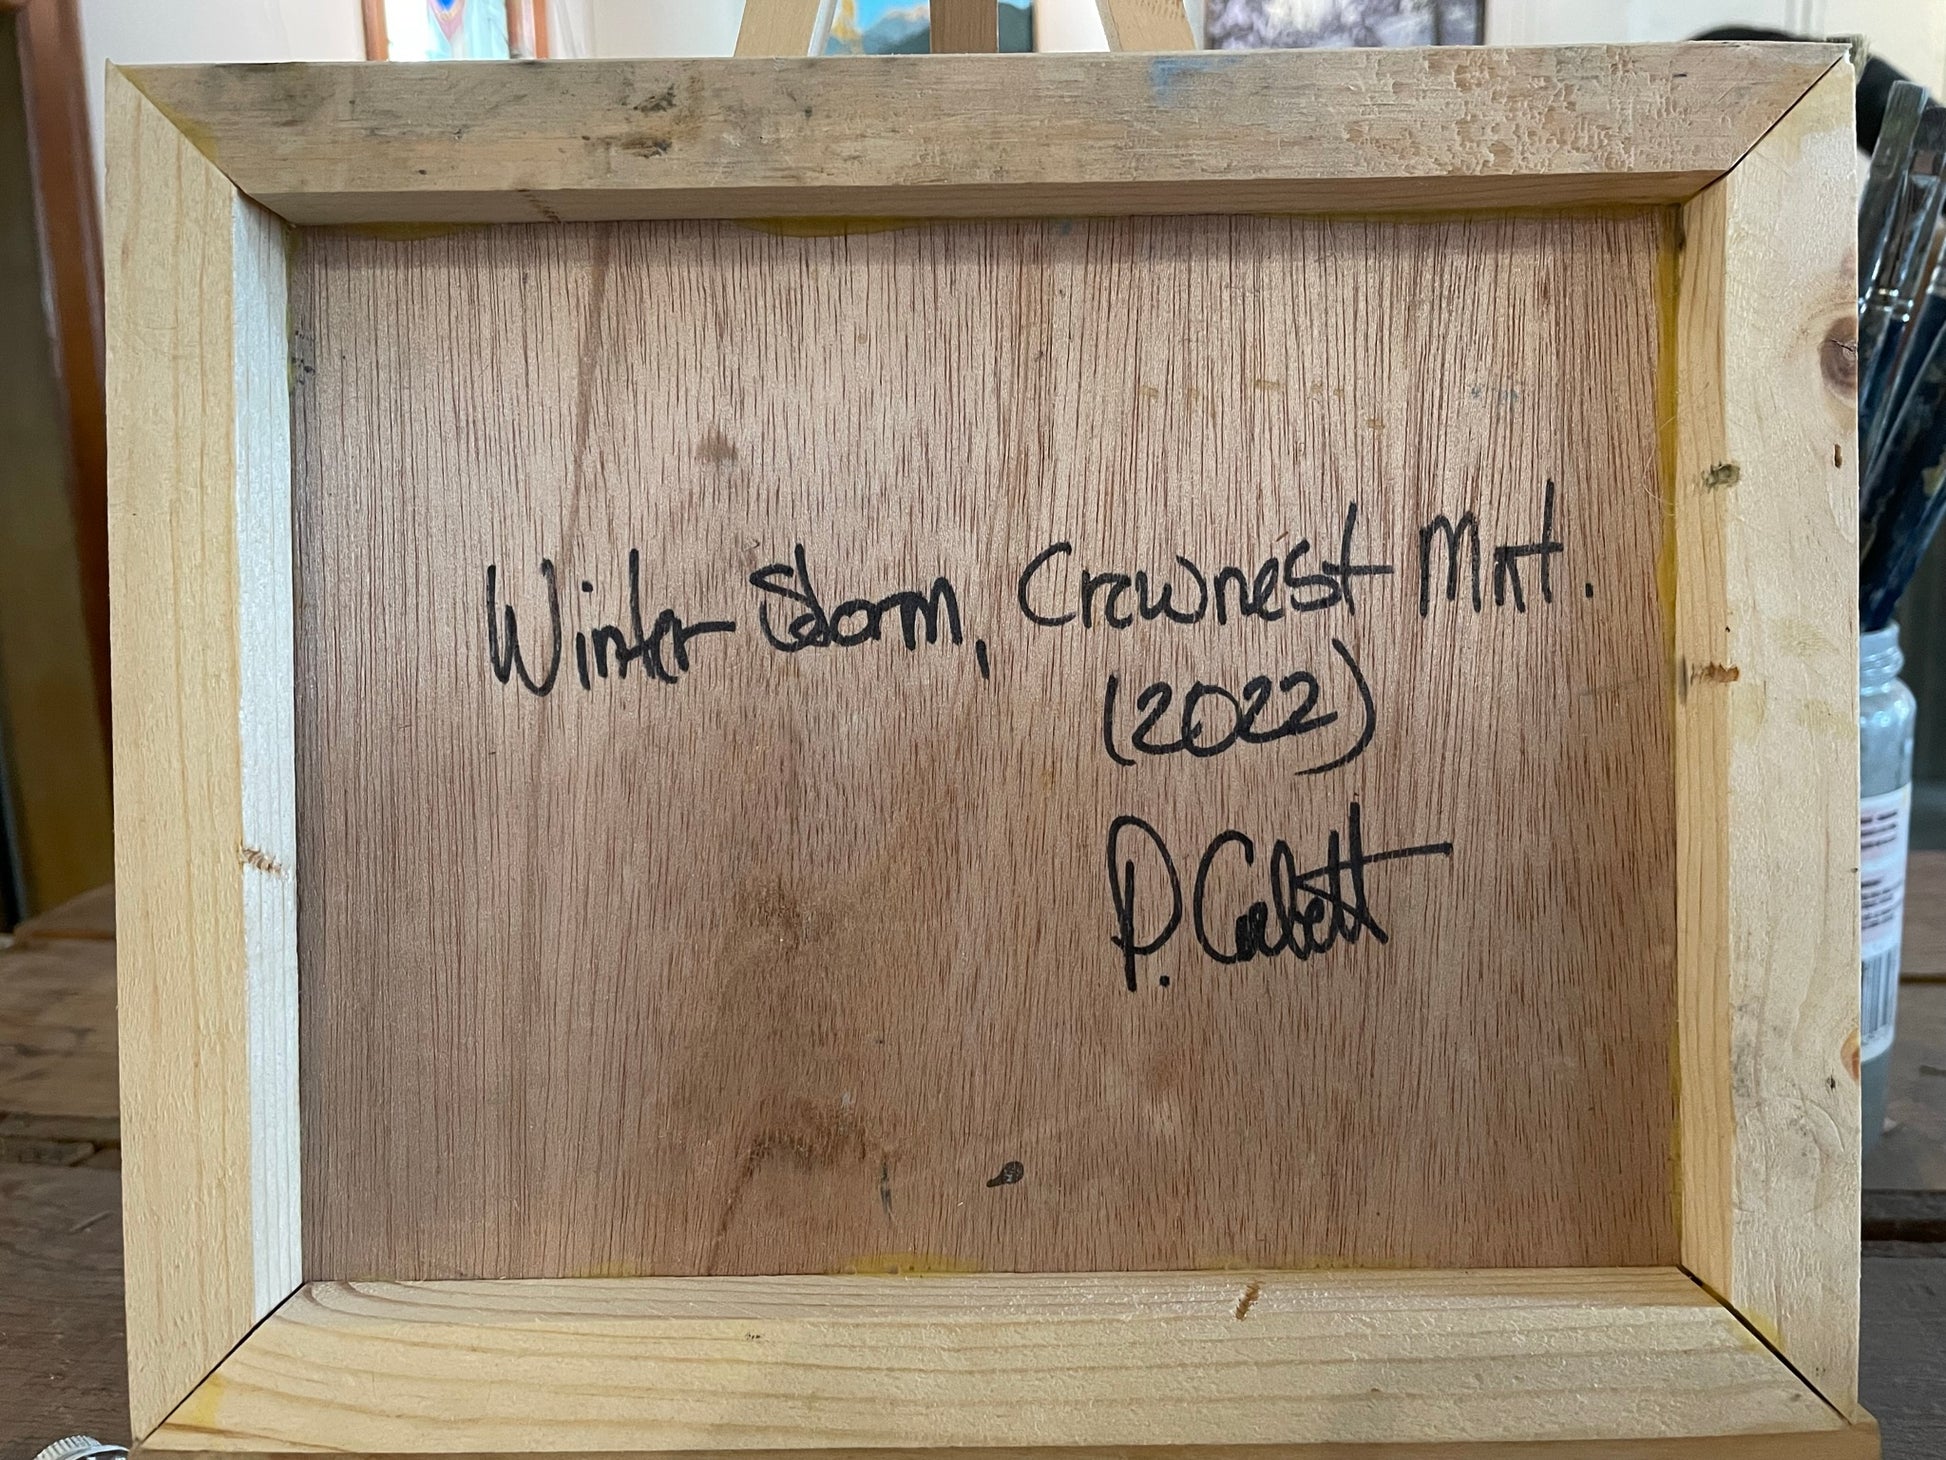 Winter Storm, Crowsnest Mnt.
(2022)
P. Corbett